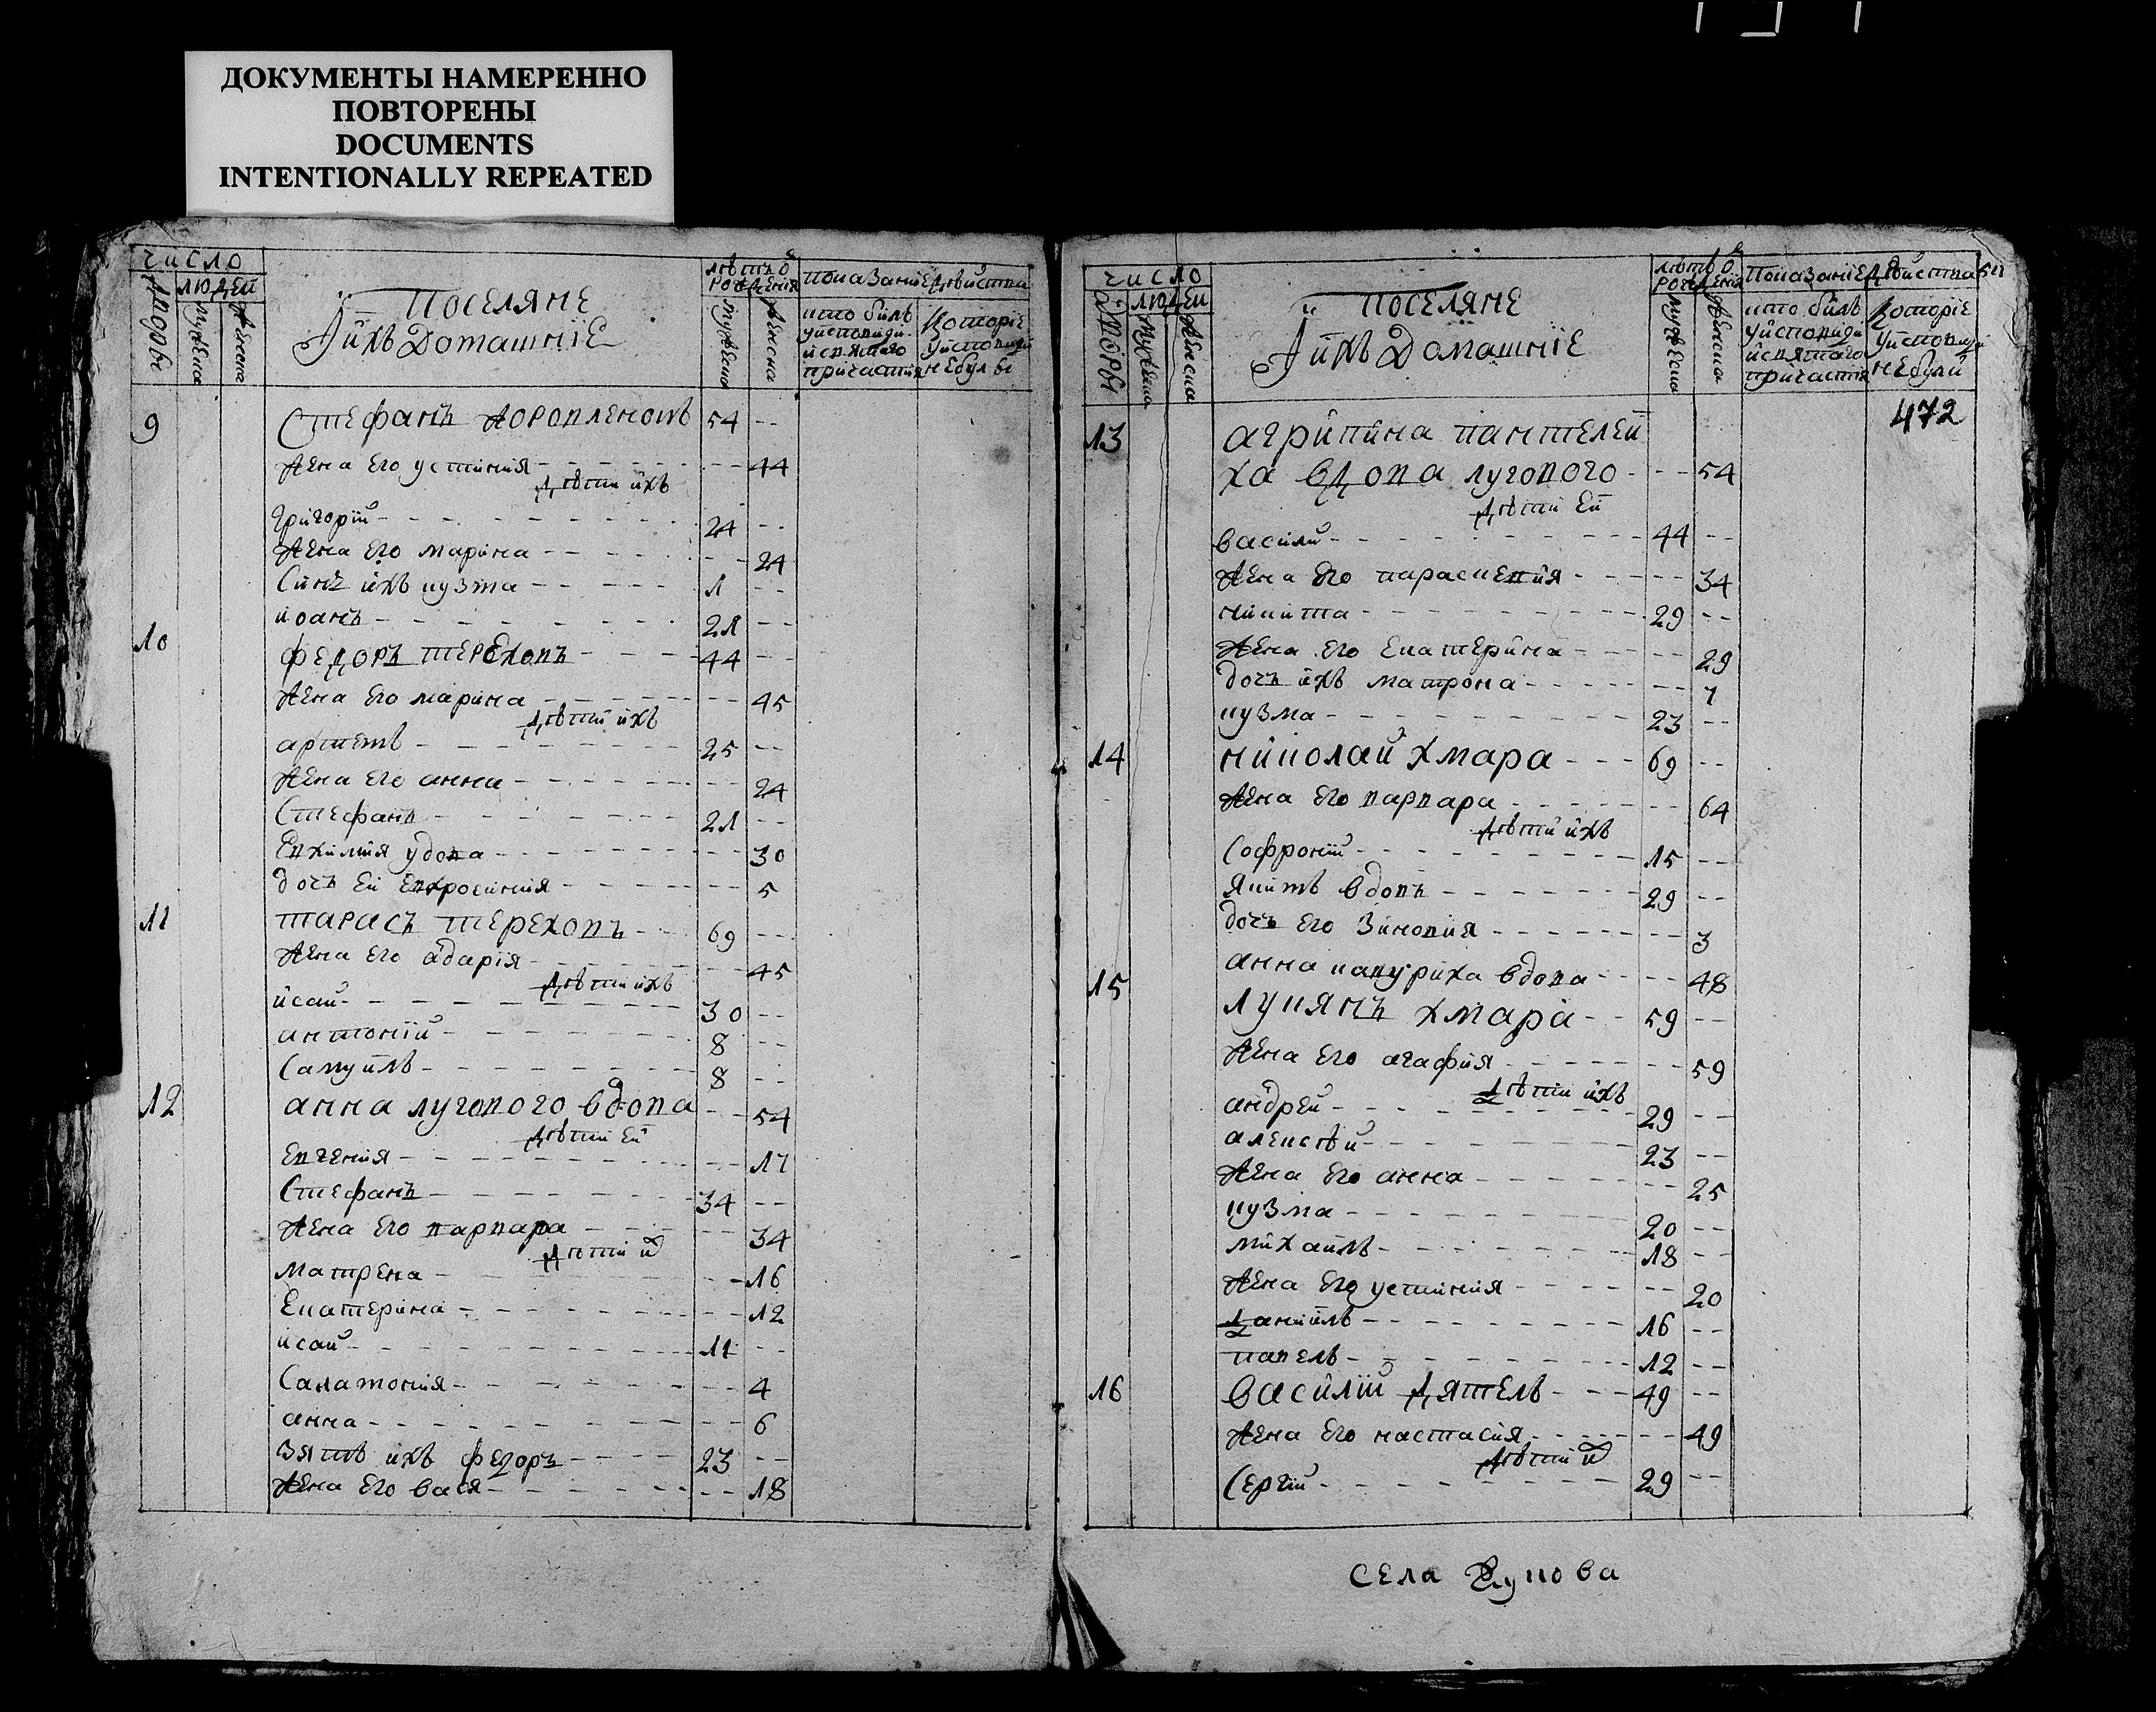 ДОКУМЕНТЫ НАМЕРЕННО
ПОВТОРЕНЫ
DOCUMENTS
INTENTIONALLY REPEATED
число
людей
Дворы
мужеска
женска
Поселяне
И ихъ Домашніе
лѣтъ ѿ
рожденія
мужеска
женска
показаніе дѣйства
кто былъ
у исповиди
и святаго
причастія
которіе
у исповиди
небулы
9 Стефанъ 54 --
жена его устинія 44
дѣти ихъ
григорій 24 --
жена его марина -- 24
Синъ ихъ кузма 1 --
иоанъ 21 --
10 федоръ тереховъ 44 --
жена его марина -- 45
дѣти ихъ
артемъ 25 --
жена его анна -- 24
Стефанъ 21 --
Евхимия удова -- 30
дочъ ей Евхросиния -- 5
11 тарасъ тереховъ 69 --
жена его дарія -- 45
дѣти ихъ
исай 30 --
антоній 8 --
Самуилъ 8 --
12 анна лугового вдова -- 54
дѣти ей
Евгения -- 17
Стефанъ 34 --
жена его варвара -- 34
дѣти их
матрена -- 16
Екатерина -- 12
исай 11 --
Саламония -- 4
анна -- 6
зять ихъ федоръ 23 --
жена его вася -- 18
число
людей
Дворы
мужеска
женска
поселяне
И ихъ Домашніе
лѣтъ ѿ
рожденія
мужеска
женска
показаніе дѣйства
кто былъ
у исповиди
и святаго
причастія
которіе
у исповиди
небули
472
13 агрипина пантелей
ха вдова лугового -- 54
дѣти ей
василій 44 --
жена его параскевия -- 34
никита 29 --
жена его Екатерина -- 29
дочъ ихъ матрона -- 7
кузма 23 --
14 николай хмара 69 --
жена его варвара -- 64
дѣти ихъ
Софроній 15 --
якимъ вдовъ 29 --
дочъ его Зиновия -- 3
анна вдова -- 48
15 лукянъ хмара 59 --
жена его агафия -- 59
дѣти ихъ
андрей 29 --
алексѣй 23 --
жена его анна -- 25
кузма 20 --
михаилъ 18 --
жена его устиния -- 20
даниилъ 16 --
павелъ 12 --
16 василій дятелъ 49 --
жена его настасия -- 49
дѣти их
Сергій 29 --
села